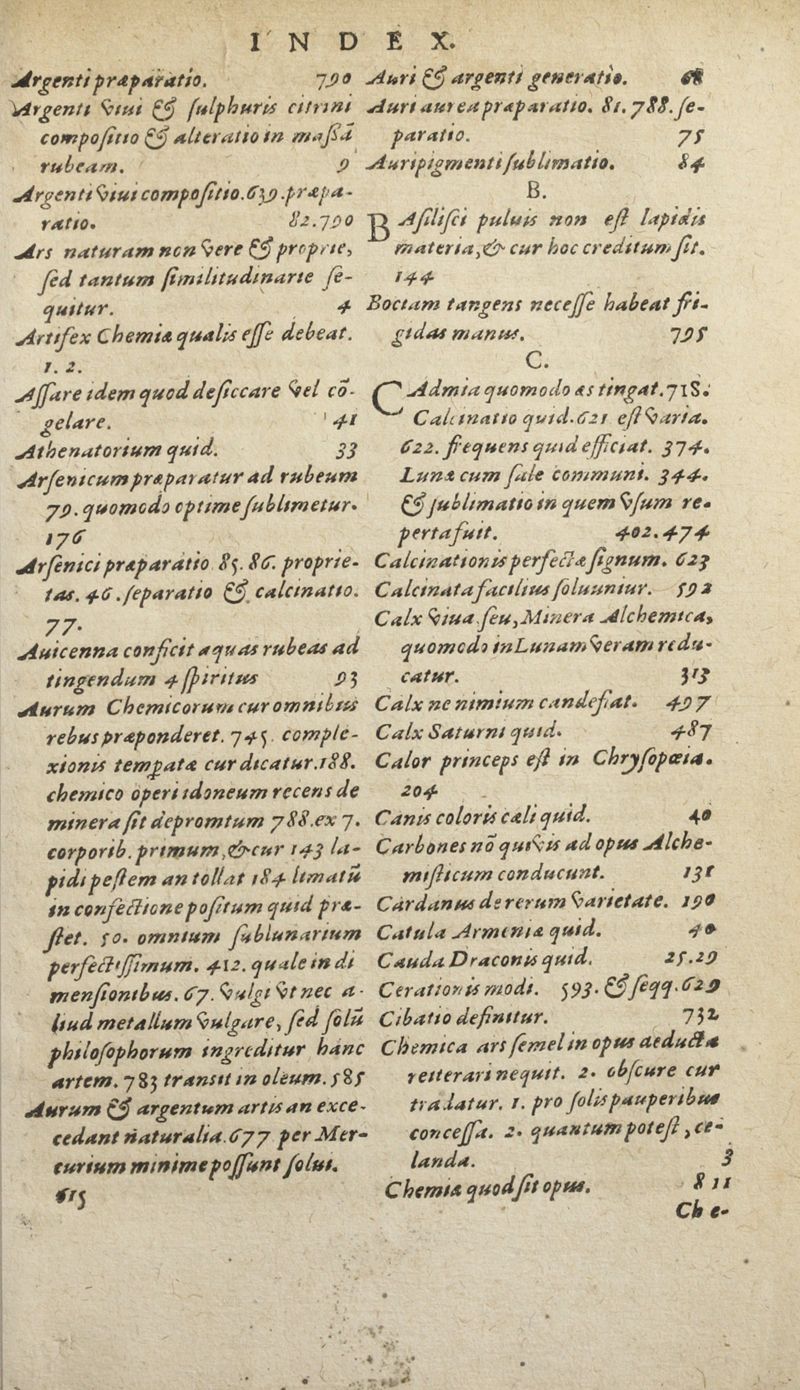 INDEX.
Argenti præparatio. 790
Argenti viui & ſulphuris citrini
compoſitio & alteratio in maſsâ
rubeam. 9
Argenti viui compoſitio. 639. præpa-
ratio. 82.790
Ars naturam non vere & proprie,
ſed tantum ſimilitudinarie ſe-
quitur. 4
Artifex Chemiæ qualis eſſe debeat.
1. 2.
Aſſare idem quod deſiccare vel cō-
gelare. 41
Athenatorium quid. 33
Arſenicum præparatur ad rubeum
79. quomodo optime ſublimetur.
176
Arſenici præparatio 85. 86. proprie-
tas. 46. ſeparatio & calcinatio.
77.
Auicenna conficit aquas rubeas ad
tingendum 4 ſpiritus 93
Aurum Chemicorum cur omnibus
rebus præponderet. 745. comple-
xionis temp̄atæ cur dicatur. 188.
chemico operi idoneum recens de
minera ſit depromtum 788. ex 7.
corporib. primum, & cur 143 la-
pidi peſtem an tollat 184 limatū
in confectione poſitum quid præ-
ſtet. 50. omnium ſublunarium
perfectiſſimum. 412. quale in di
menſionibus. 67. vulgi vt nec a-
liud metallum vulgare, ſed ſolū
philoſophorum ingreditur hanc
artem. 783 tranſit in oleum. 585
Aurum & argentum artis an exce-
cedant naturalia. 677 per Mer-
curium minime poſſunt ſolui.
615
Auri & argenti generatio. 68
Auri aurea præparatio. 81. 788. ſe-
paratio. 75
Auripigmenti ſublimatio. 84
B.
BAſiliſci puluis non eſt lapidis
materia, & cur hoc creditum ſit.
144
Boctam tangens neceſſe habeat fri-
gidas manus. 795
C.
CAdmia quomodo æs tingat. 718.
Calcinatio quid. 621 eſt varia.
622. frequens quid efficiat. 374.
Lunæ cum ſale communi. 344.
& ſublimatio in quem vſum re-
perta fuit. 402.474
Calcinationis perfectæ ſignum. 623
Calcinata facilius ſoluuntur. 592
Calx viua ſeu, Minera Alchemica,
quomodo in Lunam veram redu-
catur. 313
Calx ne nimium candefiat. 497
Calx Saturni quid. 487
Calor princeps eſt in Chryſopœia.
204
Canis coloris cæli quid. 40
Carbones nō quivis ad opus Alche-
miſticum conducunt. 131
Cardanus de rerum varietate. 190
Catula Armeniæ quid. 40
Cauda Draconis quid. 25.29
Cerationis modi. 593. & ſeqq. 629
Cibatio definitur. 732
Chemica ars ſemel in opus aeducta
reiterari nequit. 2. obſcure cur
tradatur. 1. pro ſolis pauperibus
conceſſa. 2. quantum poteſt, ce-
landa. 3
Chemiæ quod ſit opus. 811
Che-